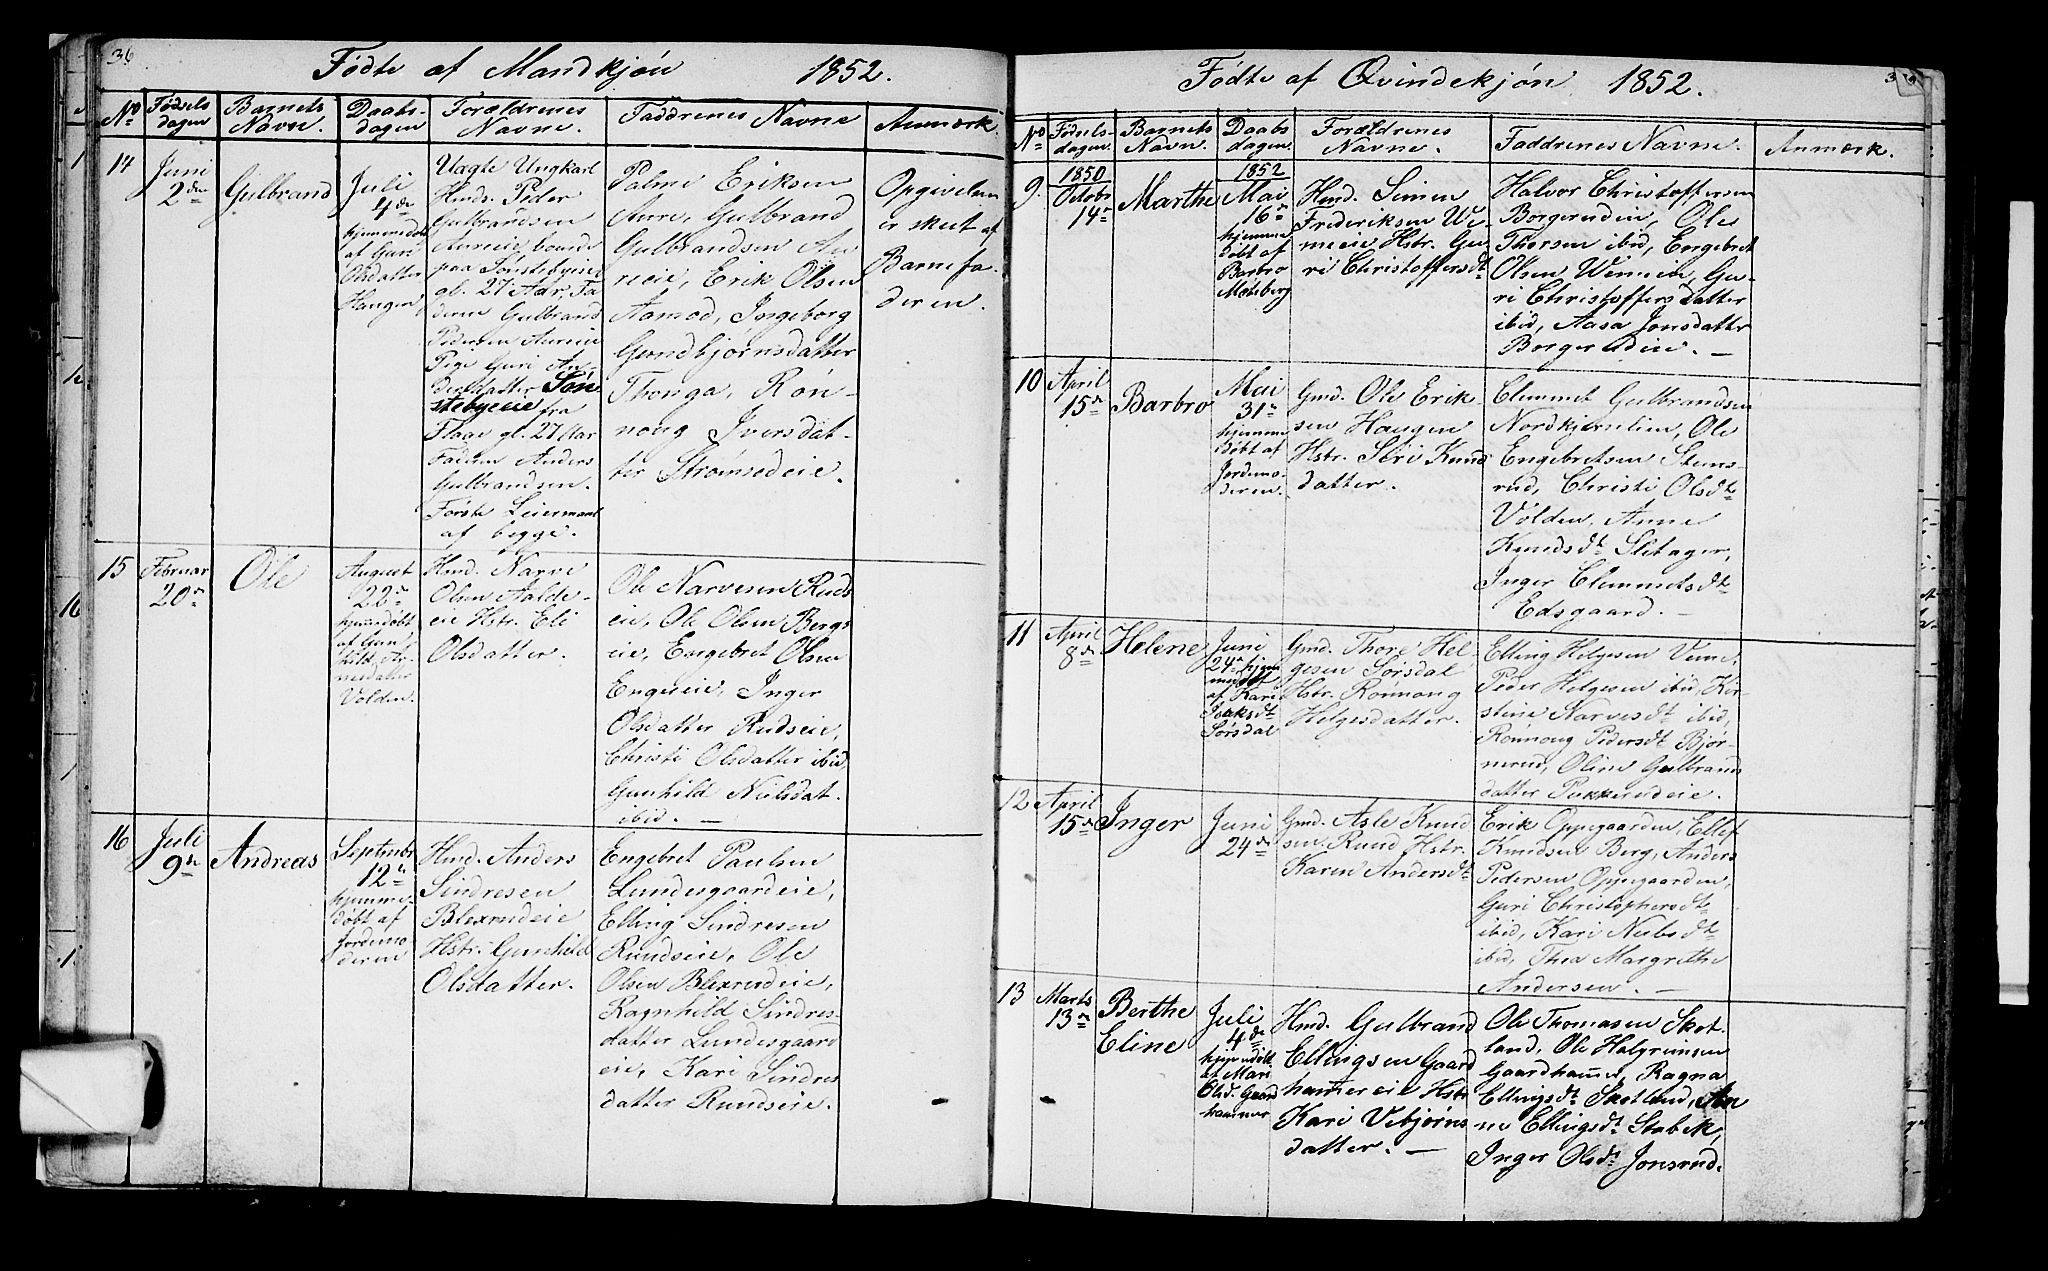 36
Fødte af Mandkjøn 1852.
No
Fødsels
dagen
Barnets
Navn.
Daabs-
dagen
Forældrenes
Navne.
Faddrenes Navne
Anmærk.
14
Juni
2den
Gulbrand
Juli
4de
hjemmedøbt
af Guri
Olsdatter
Haugen
Uægte Ungkarl
Huusm. Peder
Gulbrandsen
Aureeie boende
paa Sønstebyeie
gl. 27 Aar, Fa
deren Gulbrand
Pedersen Aureeie
Pige Guri An-
dersdatter Søn
stebyeeie fra
Flaae gl. 27 Aar
Faderen Anders
Gulbrandsen.
Første Leiermaal
af begge.
Palme Eriksen
Aure, Gulbrand
Gulbrandsen Au
reeie, Erik Olsen
Aamod, Ingeborg
Gundbjørnsdatter
Thonga, Røn-
noug Iversdat-
ter Strømsodeie.
Opgivelsen
er skeet af
Barnefa-
deren.
15
Februar
20de
Ole
August
22de
hjemmedøbt
af Gun
hild
Volden.
Hmd. Narve
Olsen Aalde-
eie Hstr. Eli
Olsdatter.
Ole Narvesen Ruds
eie, Ole Olsen Bergs
eie, Engebret Olsen
Engereie, Inger
Olsdatter Rudseie,
Christi Olsdatter ibid,
Gunhild Nielsdat.
ibid. —
16
Juli
9de
Andreas
Septembr
12te
hjemme-
døbt af
Jordemo
deren
Hmd. Anders
Sindresen
Blexrudeie
Hstr. Gunhild
Olsdatter.
Engebret Paulsen
Lundesgaardeie,
Elling Sindresen
Rundseie, Ole
Olsen Blexrudeie,
Ragnhild Sindres-
datter Lundesgaard
eie, Kari Sindres
datter Rundseie.
Fødte af Qvindekjøn 1852.
No
Fødsels-
dagen.
Barnets
Navn.
Daabs
dagen.
Forældrenes
Navne.
Faddrenes Navne.
Anmærk.
9.
1850
Octobr
14de
Marthe
1852
Mai
16de
hjemme
døbt af
Barbro
Moesberg
Hmd. Simen
Frederiksen We-
meeie Hstr. Gu-
ri Christoffersdt
Halvor Christoffersen
Borgerudeie, Ole
Thorsen ibid, Engebret
Olsen Wemeeie, Gu-
ri Christoffersdatter
ibid, Aasa Jonsdatter
Borgerudeie. —
10
April
15de
Barbro
Mai
31te
hjemme
døbt af
Jordemo-
deren.
Gmd. Ole Erik-
sen Haugen
Hstr. Siri Knud
datter.
Clemmet Gulbrandsen
Nordkjernlien, Ole
Engebretsen Stens-
rud, Christi Olsdt
Volden, Anne
Knudsdt Sletager,
Inger Clemmetsdt
Edsgaard. —
11
April
8de
Helene
Juni
24de hjem
medøbt
af Kari
Isaksdt
Sørsdal
Gmd. Thore Hel-
gesen Sørsdal
Hstr. Rønnoug
Helgesdatter.
Elling Helgesen Veme,
Peder Helgesen ibid, Kir-
stine Narvesdt ibid,
Rønnoug Pedersdt Bjør-
nerud, Oline Gulbrands
datter Pukkerudeie.
12
April
15de
Inger
Juni
24de
Gmd. Asle Knud
sen Ruud Hstr.
Karen Andersdt
Erik Oppegaarden, Ellef
Knudsen Berg, Anders
Pedersen Oppegaarden,
Guri Christophersdt
ibid, Kari Nubsdt
ibid, Thea Margrethe
Andersen. —
13
Marts
13de
Berthe
Eline
Juli
4de
hjemdøbt
af Mari
Olsd. Gaard
hammer
Hmd. Gulbrand
Ellingsen Gaard
hammereie Hstr
Kari Vebjørns
datter. —
Ole Thomasen Skot-
land, Ole Halgrimsen
Gaardhammer, Ragna
Ellingsdt Skotland, An
ne Ellingsdt Stabek,
Inger Olsdt Jonsrud.